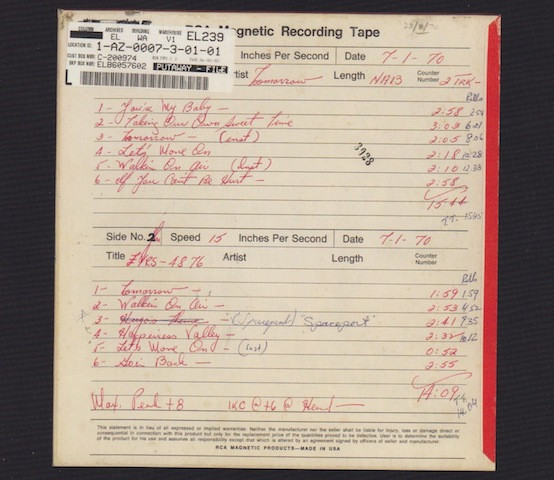 COLUMN ARCHIVES BUILDING WAREHOUSE
EL WA V1 EL239
LOCATION ID: 1-AZ-0007-3-01-01
CUST BOX NBR: C-200974
SKP BOX NBR: ELB6057602 PUTAWAY - FILE
RCA Magnetic Recording Tape
Inches Per Second Date 7-1-70
Artist Tomorrow Length NAB Counter Number 2 TRK-
1 - You're My Baby - 2:58
2 - Taking Our Own Sweet Time 3:03
3 - Tomorrow - (inst) 2:05
3928
4 - Let's Move On 2:18
5 - Walkin On Air (Inst) 2:10
6 - If You Can't Be Hurt - 2:58
15:44
Side No. 2 Speed 15 Inches Per Second Date 7-1-70
Title ZNRS-4876 Artist Length Counter Number
1 - Tomorrow - 1:59 1:59
2 - Walkin On Air - 2:53 4:52
3 - - (Spaceport) "Spaceport" 2:41
4 - Happiness Valley -
5 - Let's Move On - (inst) 0:52
6 - Goin Back - 2:55
14:09
Max. Peak +8 1KC @ +6 @ Head -
This statement is in lieu of all expressed or implied warranties. Neither the manufacturer nor the seller shall be liable for injury, loss or damage direct or
consequential in connection with this product but only for the replacement price of the quantities proved to be defective. User is to determine the suitability
of the product for his use and assumes all responsibility except that which is altered by an agreement signed by officers of seller and manufacturer
RCA MAGNETIC PRODUCTS—MADE IN USA